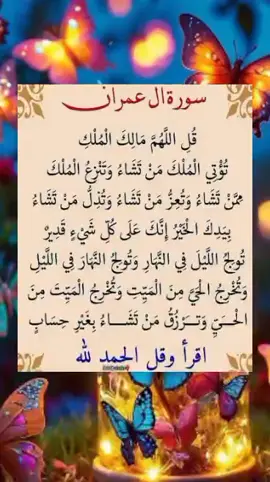 سورة ال عمران
قُلِ اللَّهُمَّ مَالِكَ الْمُلْكِ
تُؤْتِي الْمُلْكَ مَنْ تَشَاءُ وَتَنْزِعُ الْمُلْكَ
مِمَّنْ تَشَاءُ وَتُعِزُّ مَنْ تَشَاءُ وَتُذِلُّ مَنْ تَشَاءُ
بِيَدِكَ الْخَيْرُ إِنَّكَ عَلَى كُلِّ شَيْءٍ قَدِيرٌ
تُولِجُ اللَّيْلَ فِي النَّهَارِ وَتُولِجُ النَّهَارَ فِي اللَّيْلِ
وَتُخْرِجُ الْحَيَّ مِنَ الْمَيِّتِ وَتُخْرِجُ الْمَيِّتَ مِنَ
الْحَــيِّ وَتَــرْزُقُ مَنْ تَشَــــاءُ بِغَيْرِ حِسَابٍ
اقرأ وقل الحمد لله